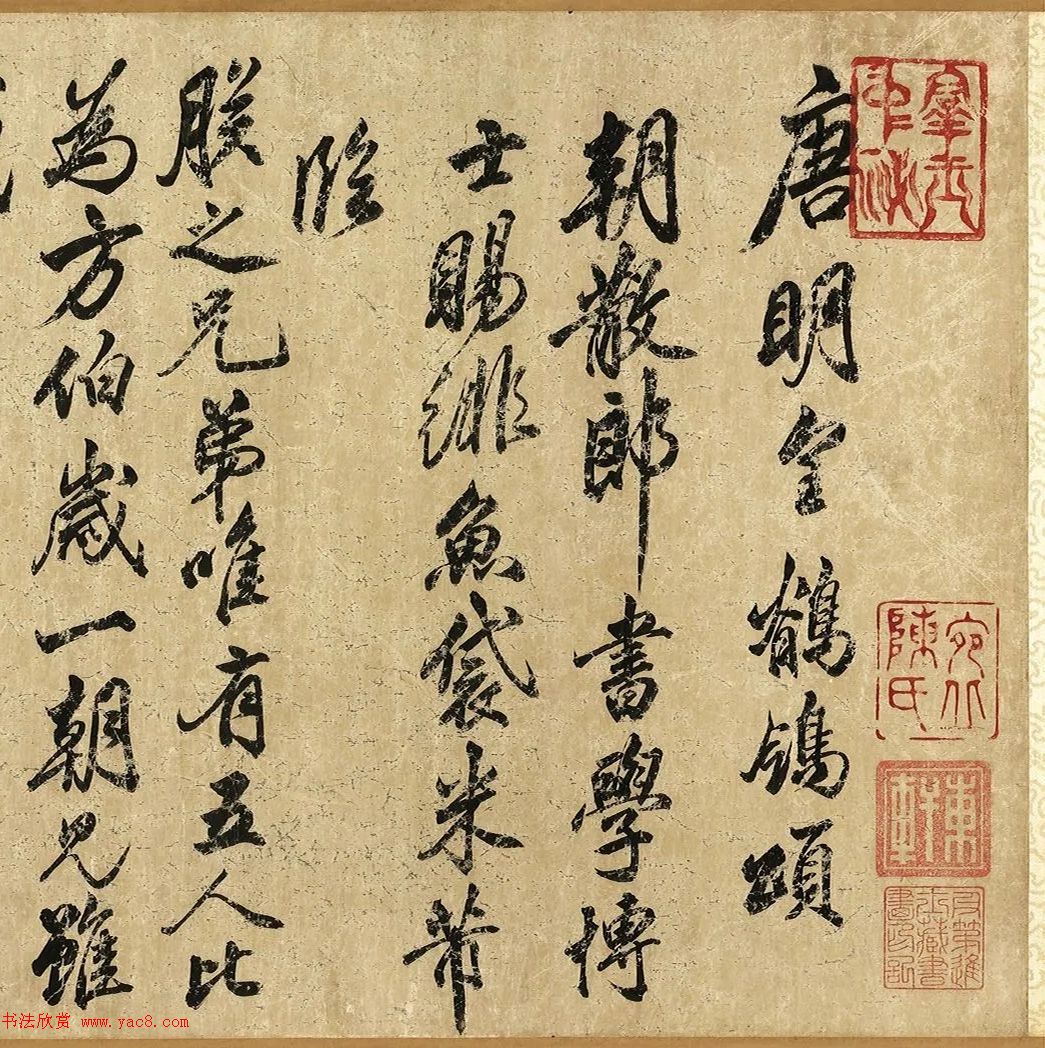 唐明皇鶺鴒頌
朝散郎書學博
士賜緋魚袋米芾
臨
朕之兄弟唯有五人比
為方伯歲一朝見雖
陳氏
书法欣赏 www.yac8.com